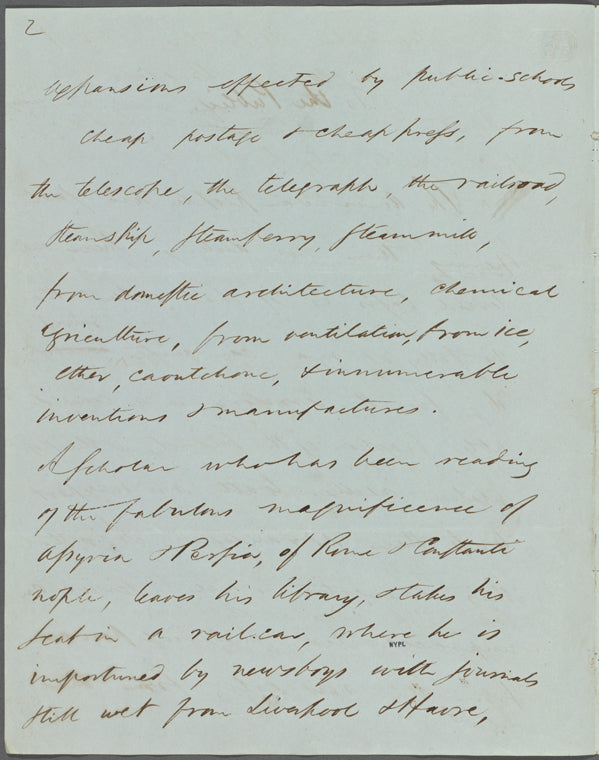 2
expansions effected by public-schools
cheap postage & cheap press, from
the telescope, the telegraph, the railroad,
steamship, steamferry, steammill,
from domestic architecture, chemical
agriculture, from ventilation, from ice,
ether, caoutchouc, & innumerable
inventions & manufactures.
A Scholar who has been reading
of the fabulous magnificence of
Assyria & Persia, of Rome & Constanti
nople, leaves his library, & takes his
seat in a rail-car, where he is
NYPL
importuned by newsboys with journals
still wet from Liverpool & Havre,